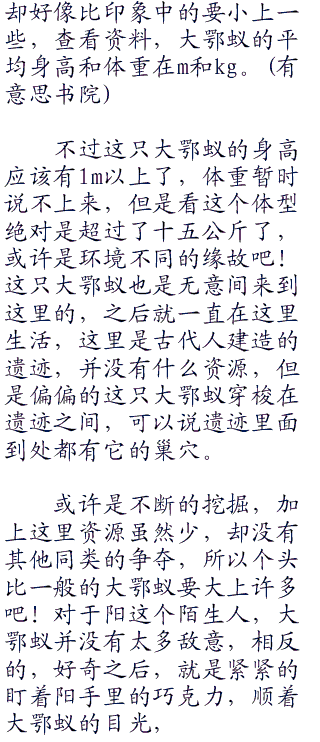 却好像比印象中的要小上一
些，查看资料，大鄂蚁的平
均身高和体重在m和kg。(有
意思书院)
不过这只大鄂蚁的身高
应该有1m以上了，体重暂时
说不上来，但是看这个体型
绝对是超过了十五公斤了，
或许是环境不同的缘故吧！
这只大鄂蚁也是无意间来到
这里的，之后就一直在这里
生活，这里是古代人建造的
遗迹，并没有什么资源，但
是偏偏的这只大鄂蚁穿梭在
遗迹之间，可以说遗迹里面
到处都有它的巢穴。
或许是不断的挖掘，加
上这里资源虽然少，却没有
其他同类的争夺，所以个头
比一般的大鄂蚁要大上许多
吧！对于阳这个陌生人，大
鄂蚁并没有太多敌意，相反
的，好奇之后，就是紧紧的
盯着阳手里的巧克力，顺着
大鄂蚁的目光，